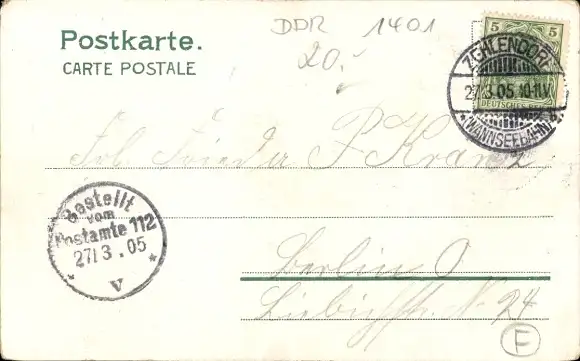 DDR 1401
Postkarte.
CARTE POSTALE
20.-
5 5
DEUTSCHES
ZEHLENDORF
27.3.05.10-11V.
* WANNSEEBAHN b.
Frl. Frieda F Kranz
Bestellt
vom
Postamte 112
27/3.05
V
Berlin O
Liebigstr. N. 24
F